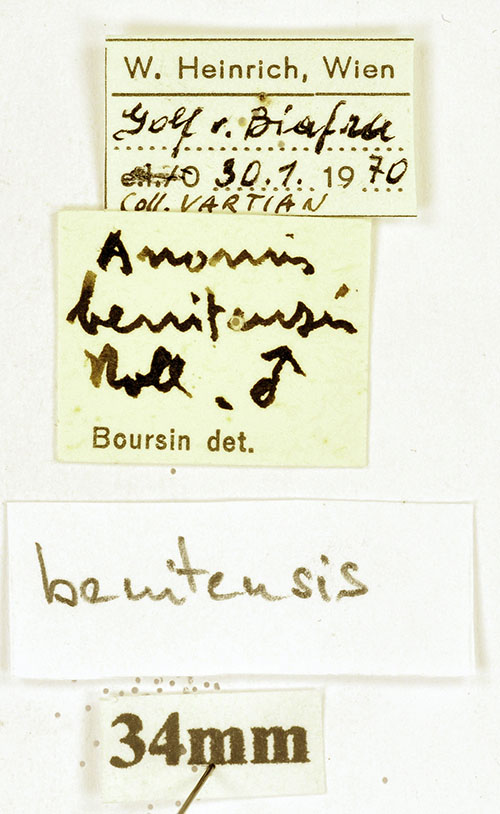 W. Heinrich, Wien
Golf v. Biafra
e.l./O 30.1. 1970
Coll. VARTIAN
Anomis
benitensis
Holl. ♂
Boursin det.
benitensis
34mm